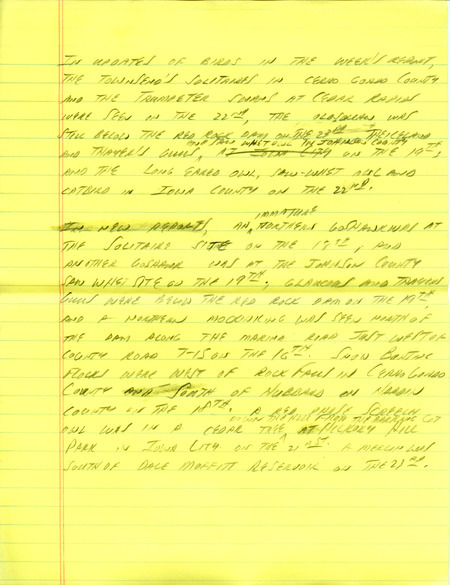 IN UPDATES OF BIRDS IN THE WEEK'S REPORT,
THE TOWNSEND'S SOLITAIRES IN CERRO GORDO COUNTY
AND THE TRUMPETER SWANS AT CEDAR RAPIDS
WERE SEEN ON THE 22ND, THE OLDSQUAW WAS
STILL BELOW THE RED ROCK DAM ON THE 23RD THE ICELAND
AND SAW WHET OWL IN JOHNSON COUNTY
AND THAYER'S GULLS, AT IOWA CITY ON THE 19TH,
AND THE LONG EARED OWL, SAW-WHET OWL AND
CATBIRD IN IOWA COUNTY ON THE 22ND.
IN NEW REPORTS, AN IMMATURE NORTHERN GOSHAWK WAS AT
THE SOLITAIRE SITE ON THE 17TH, AND
ANOTHER GOSHAWK WAS AT THE JOHNSON COUNTY
SAW WHET SITE ON THE 19TH. GLAUCOUS AND THAYERS
GULLS WERE BELOW THE RED ROCK DAM ON THE 19TH
AND A NORTHERN MOCKINGBIRD WAS SEEN NORTH OF
THE DAM ALONG THE MARINA ROAD JUST WEST OF
COUNTY ROAD T-15 ON THE 16TH. SNOW BUNTING
FLOCKS WERE WEST OF ROCK FALLS IN CERRO GORDO
COUNTY AND SOUTH OF HUBBARD ON HARDIN
COUNTY ON THE 18TH. A RED PHASE SCREECH
OWL WAS IN A CEDAR TREE AT HICKORY HILL
PARK IN IOWA CITY ON THE 21ST. A MERLIN WAS
SOUTH OF DALE MOFFITT RESERVOIR ON THE 23RD.